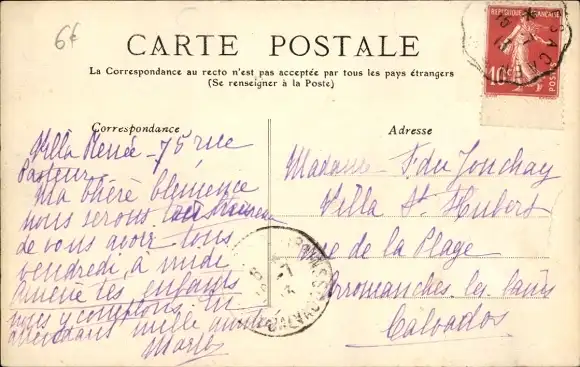 6€
CARTE POSTALE
La Correspondance au recto n'est pas acceptée par tous les pays étrangers
(Se renseigner à la Poste)
Correspondance
Villa Renée - 75 rue
Pasteur.
Ma chère Clémence
nous serons
de vous avoir tous
vendredi, à midi
amène tes enfants
nous y comptons. En
attendant mille amitiés
Adresse
Madame F. du Jonchay
Villa St Hubert
rue de la Plage
Arromanches les bains
Calvados
REPUBLIQUE FRANÇAISE
10